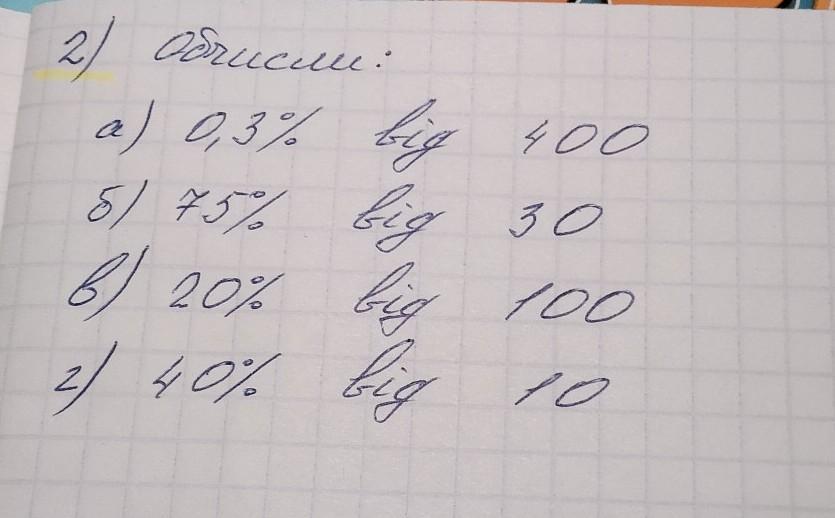 2) Обчисли:
а) 0,3% від 400
б) 75% від 30
в) 20% від 100
г) 40% від 10